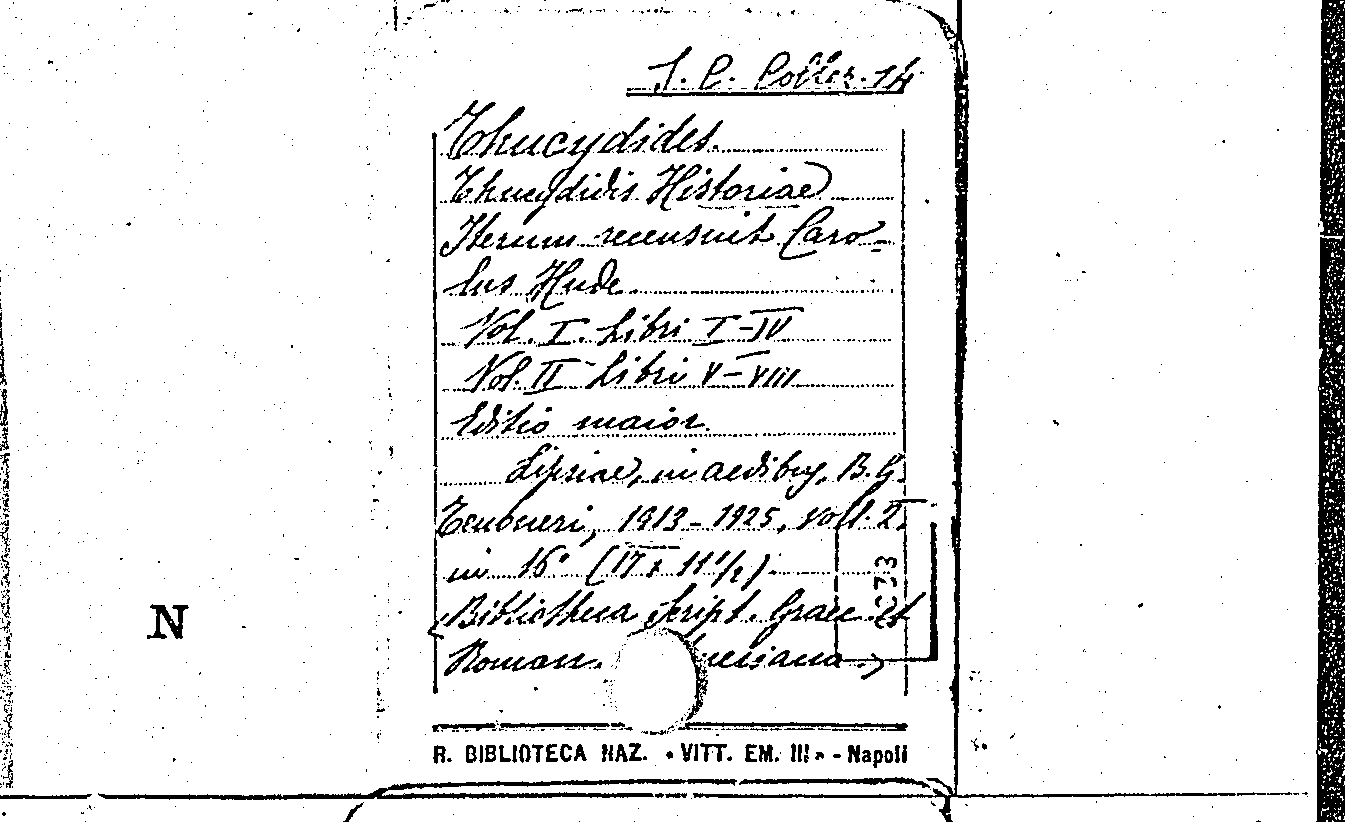 S. C. Coller. 14
Thucydides.
Thucydidis Historiae
Iterum recensuit Caro-
lus Hude
Vol. I. Libri I-IV
Vol. II Libri V-VIII
Editio maior.
Lipsiae, in aedibus, B. G.
Teubneri, 1913-1925, voll. 2.
in 16° (17 x 11 1/2)
(Bibliotheca Script. Graec. et
Roman. neriana.)
C73
N
R. BIBLIOTECA NAZ. « VITT. EM. III » - Napoli